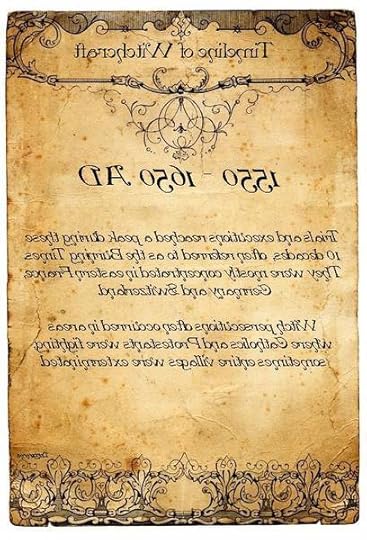 Timeline of Witchcraft
1550 - 1650 AD
Trials and executions reached a peak during these
10 decades, often referred to as the Burning Times.
They were mostly concentrated in eastern France,
Germany and Switzerland.
Witch persecutions often occurred in areas
where Catholics and Protestants were fighting
sometimes entire villages were exterminated